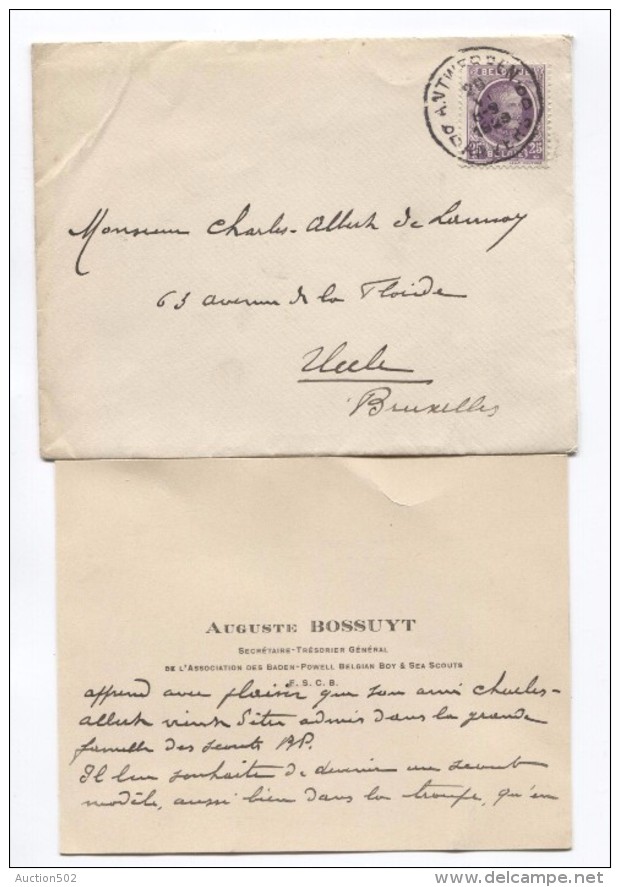 ANTWERPEN
BELGIË
25 25
BELGIQUE
Monsieur Charles-Albert de Launoy
63 avenue de la Floride
Uccle
Bruxelles
AUGUSTE BOSSUYT
SECRÉTAIRE-TRÉSORIER GÉNÉRAL
DE L'ASSOCIATION DES BADEN-POWELL BELGIAN BOY & SEA SCOUTS
F. S. C. B.
apprend avec plaisir que son ami Charles-
Albert vient d'être admis dans la grande
famille des scouts BP.
Il lui souhaite de devenir un scout
modèle, aussi bien dans la troupe, qu'en
Auction502
delcampe.net